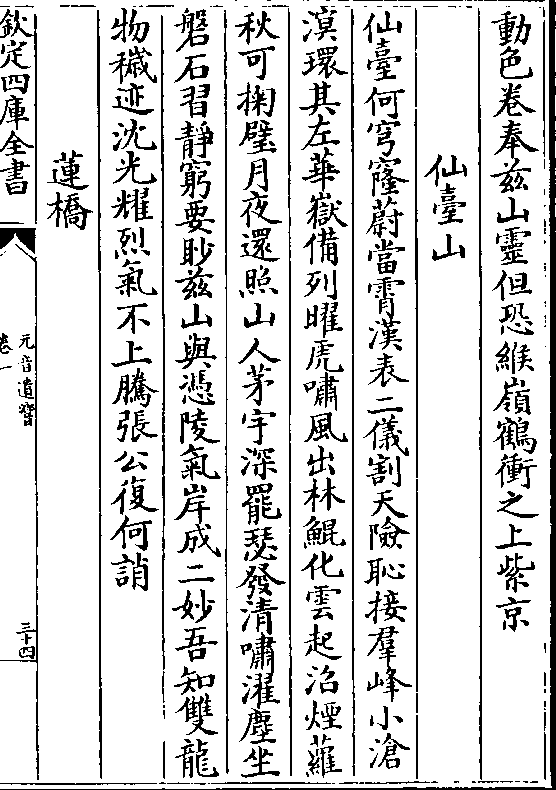 動色卷奉兹山靈但恐緱嶺鶴衝之上紫京
仙臺山
仙臺何穹窿蔚當霄漢表二儀割天險恥接羣峰小滄
溟環其左華嶽備列曜虎嘯風出林鯤化雲起沼煙蘿
秋可掬璧月夜還照山人茅宇深罷瑟發清嘯濯塵坐
磐石習靜窮要眇兹山與憑陵氣岸成二妙吾知雙龍
物穢迹沈光耀烈氣不上騰張公復何誚
蓮橋
欽定四庫全書
元音遺響
卷一
三十四